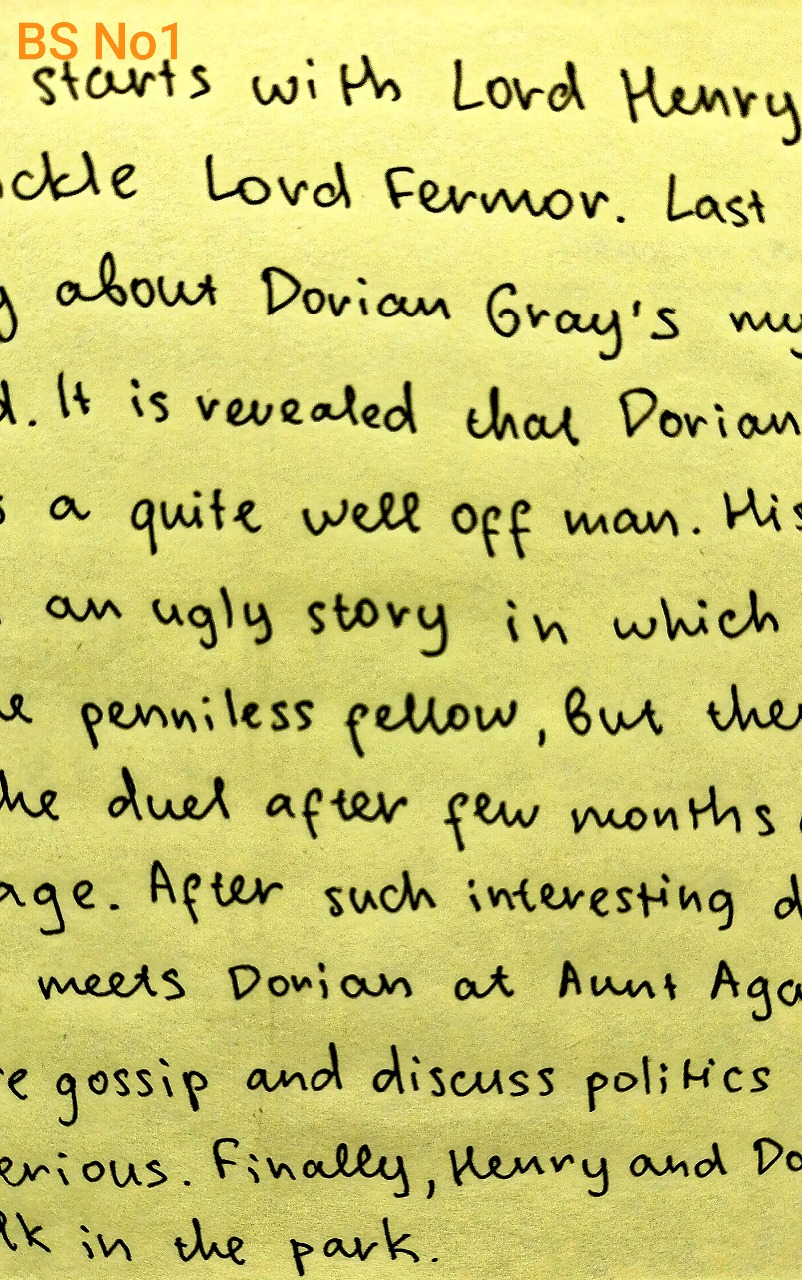 BS No1
starts with Lord Henry
ckle Lord Fermor. Last
y about Dorian Gray's my
d. It is revealed that Dorian
s a quite well off man. His
an ugly story in which
e penniless fellow, but the
he duel after few months
age. After such interesting d
meets Dorian at Aunt Aga
re gossip and discuss politics
erious. Finally, Henry and Do
lk in the park.